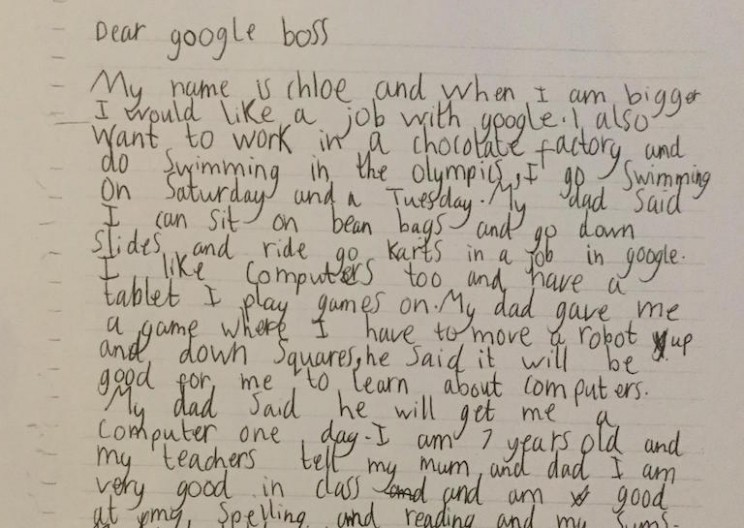 Dear google boss
My name is chloe and when I am bigger
I would like a job with google. I also
want to work in a chocolate factory and
do swimming in the olympics, I go swimming
on Saturday and a Tuesday. My dad said
I can sit on bean bags and go down
slides and ride go karts in a job in google.
I like computers too and have a
tablet I play games on. My dad gave me
a game where I have to move a robot up
and down squares, he said it will be
good for me to learn about computers.
My dad said he will get me a
computer one day. I am 7 years old and
my teachers tell my mum and dad I am
very good in class and and am good
at my spelling and reading and my sums